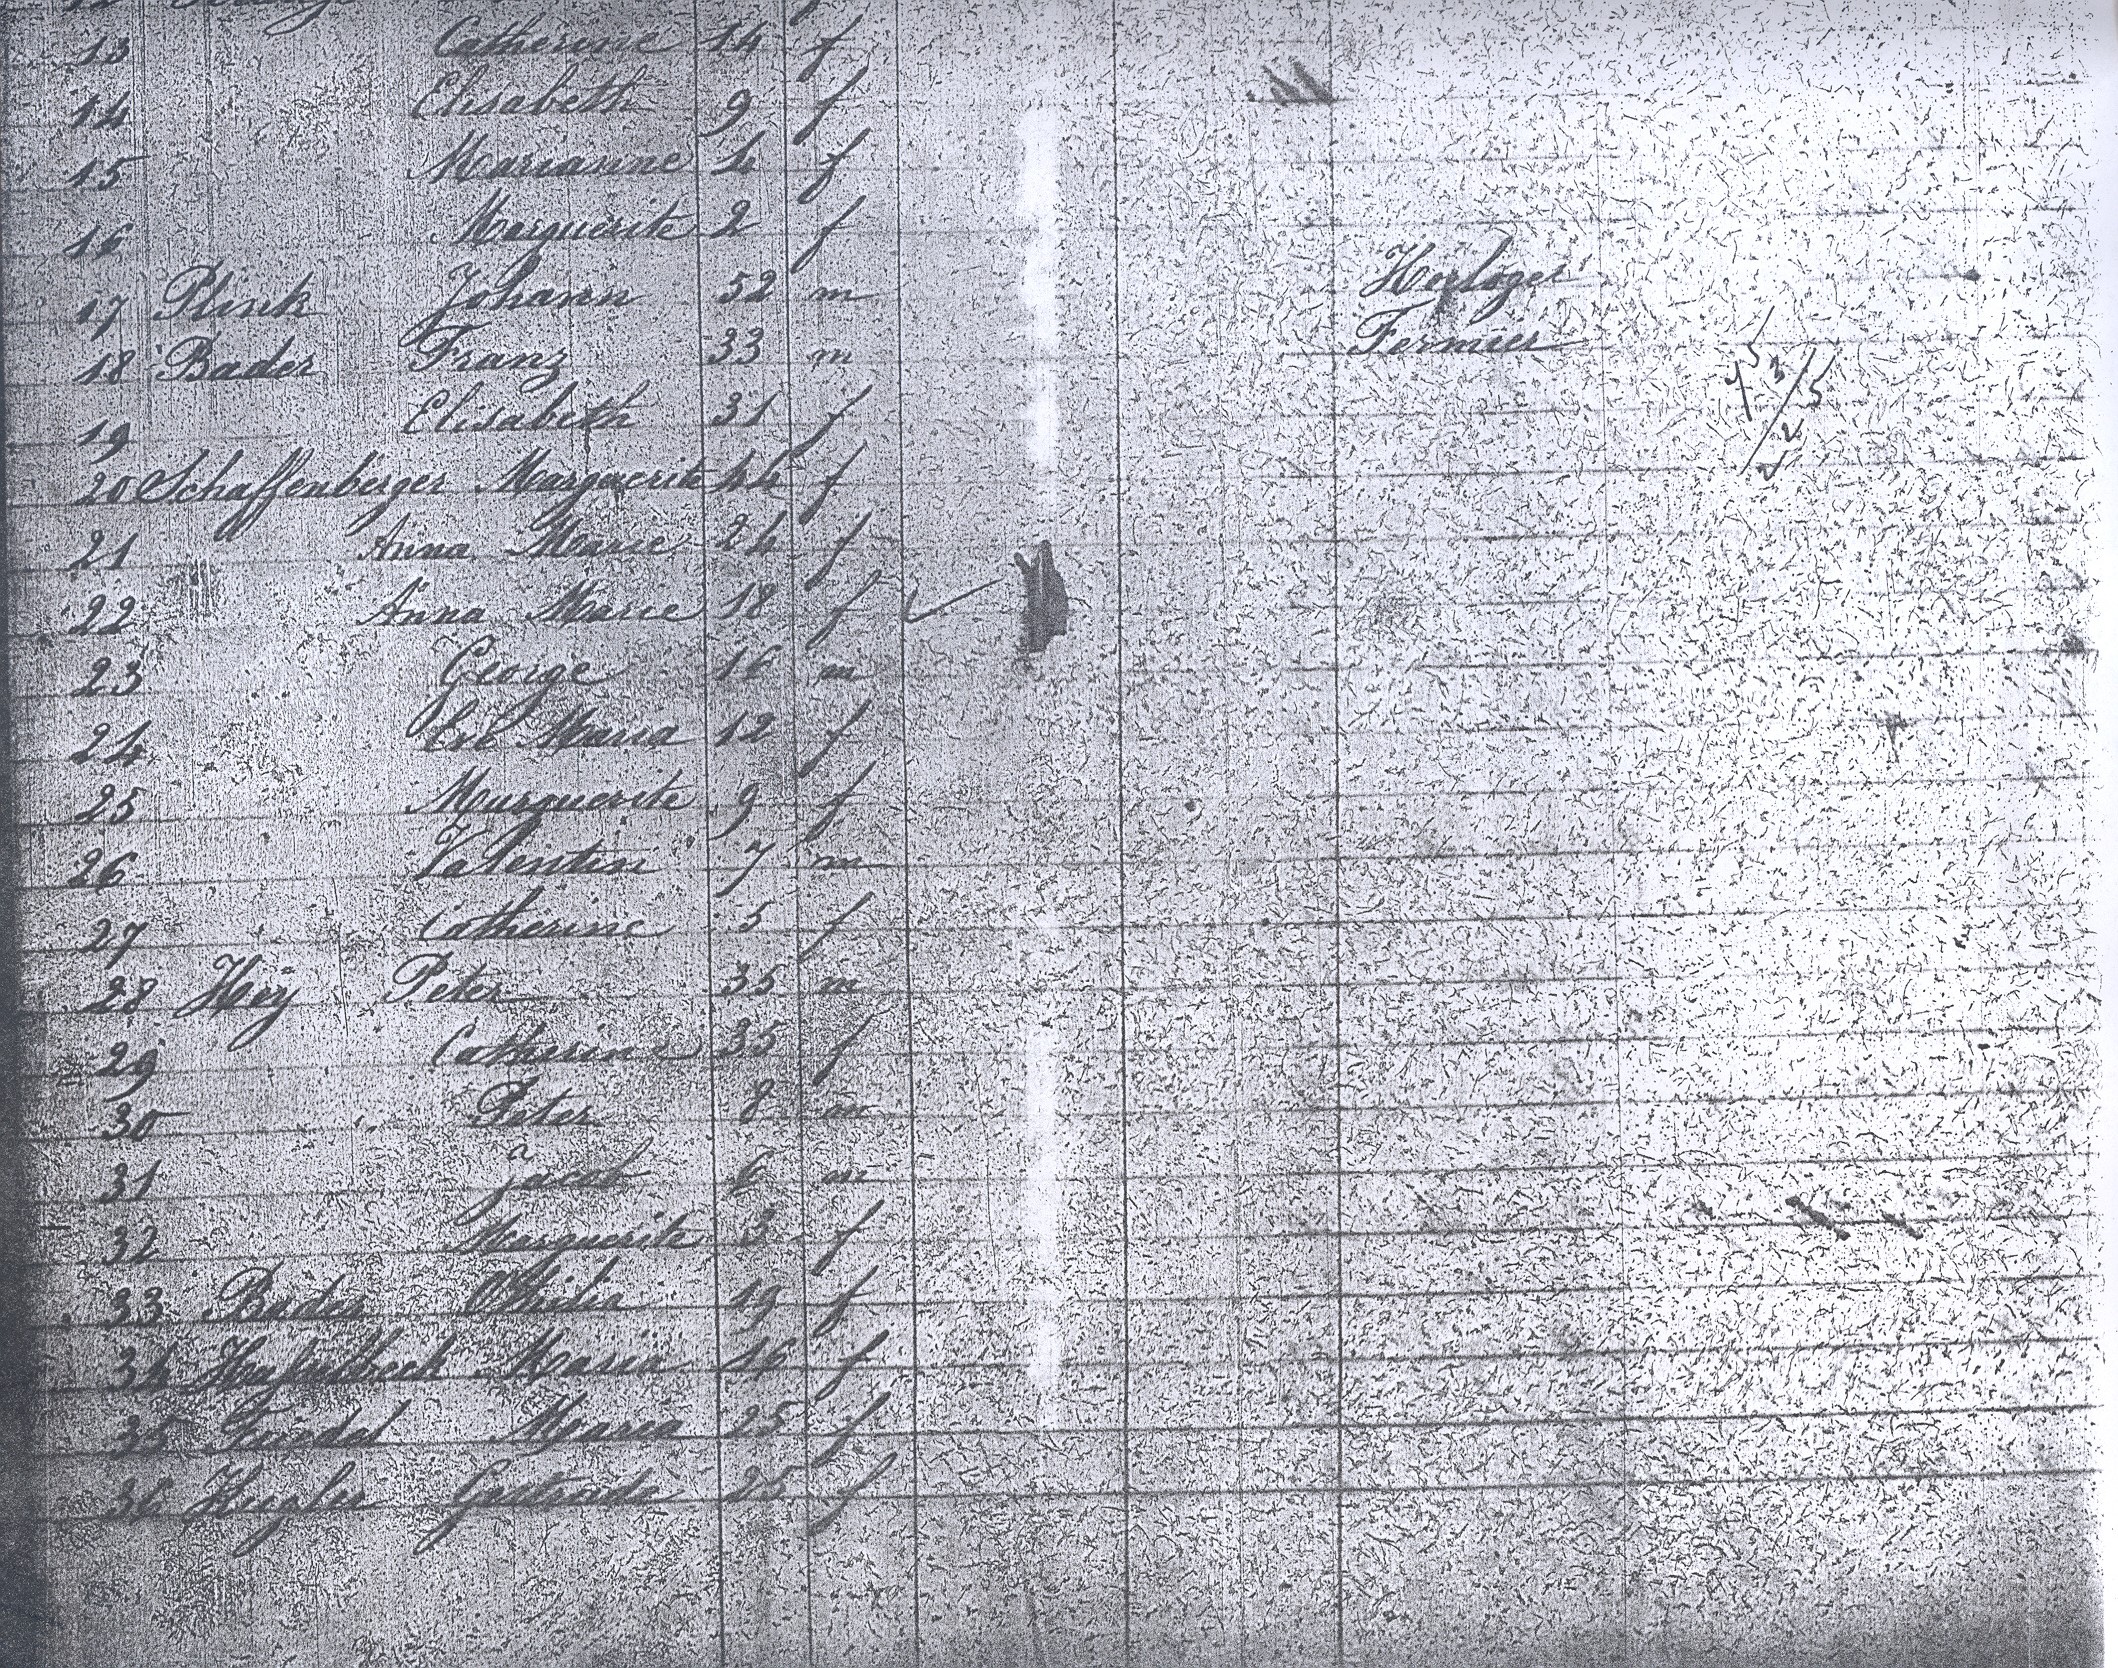 13 Catherine 14 f
14 Elisabeth 9 f
15 Marianne 4 f
16 Marguerite 2 f
17 Rink Johann 52 m Horloger
18 Bader Franz 33 m Fermier
19 Elisabeth 31 f
20 Schaffenberger Marguerite 44 f
21 Anna Marie 24 f
22 Anna Marie 18 f
23 George 16 m
24 Maria 12 f
25 Marguerite 9 f
26 Valentin 7 m
27 Catherine 5 f
28 Hoÿ Peter 35 m
29 Catherine 35 f
30 Peter 8 m
31 Jacob 6 m
32 Marguerite 3 f
33 Bader 19 f
34 Maria 16 f
35 Maria 25 f
36 Kugler 25 f